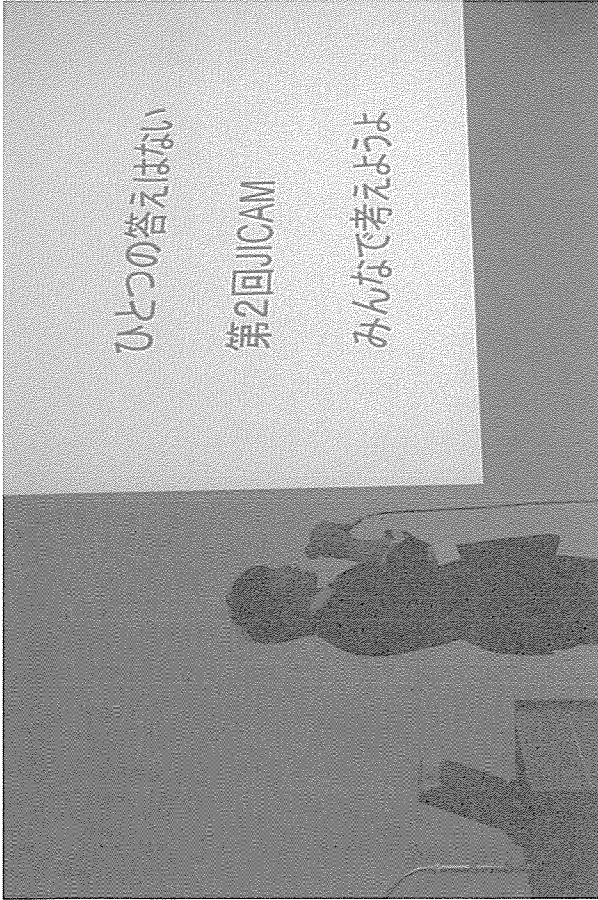 ひとつの答えはない
第2回JICAM
みんなで考えようよ